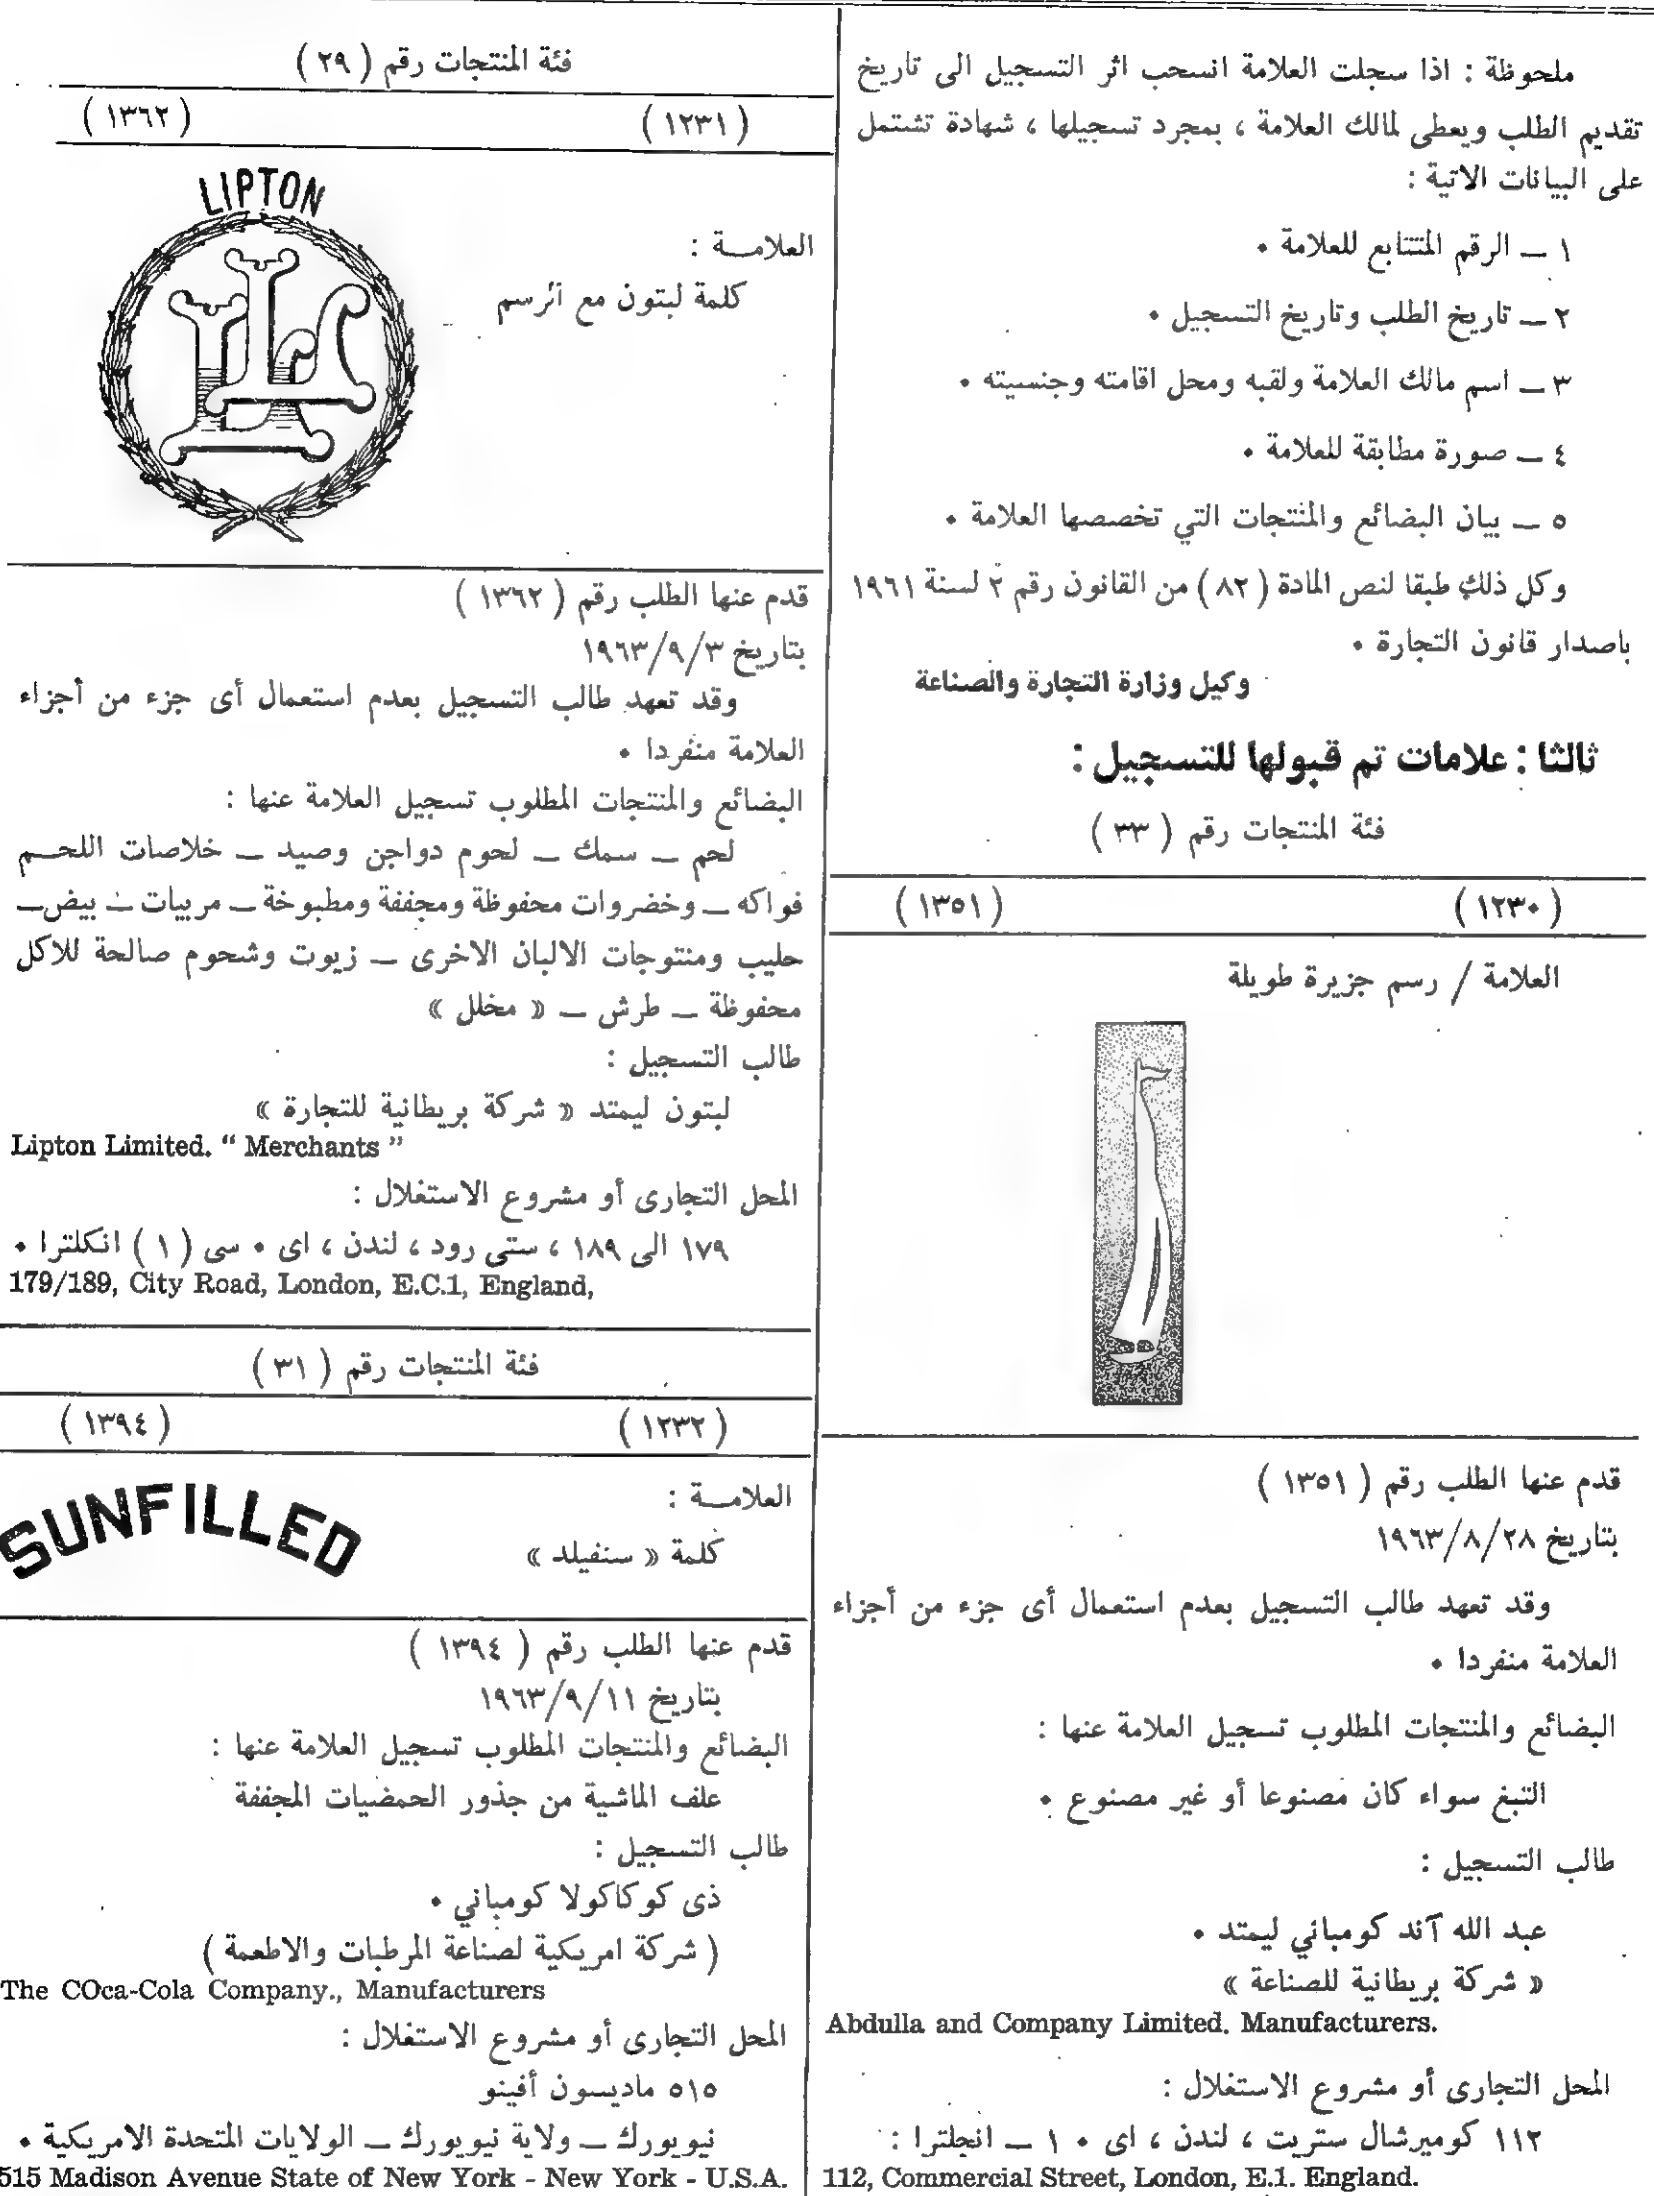 ملحوظة : اذا سجلت العلامة انسحب اثر التسجيل الى تاريخ
تقديم الطلب ويعطى لمالك العلامة ، بمجرد تسجيلها ، شهادة تشتمل
على البيانات الاتية :
١ ــ الرقم المتتابع للعلامة ٠
٢ ــ تاريخ الطلب وتاريخ التسجيل ٠
٣ ــ اسم مالك العلامة ولقبه ومحل اقامته وجنسيته ٠
٤ ــ صورة مطابقة للعلامة ٠
٥ ــ بيان البضائع والمنتجات التي تخصصها العلامة ٠
وكل ذلك طبقا لنص المادة ( ٨٢ ) من القانون رقم ٢ لسنة ١٩٦١
باصدار قانون التجارة ٠
وكيل وزارة التجارة والصناعة
ثالثا : علامات تم قبولها للتسجيل :
فئة المنتجات رقم ( ٣٣ )
( ١٢٣٠ ) ( ١٣٥١ )
العلامة / رسم جزيرة طويلة
قدم عنها الطلب رقم ( ١٣٥١ )
بتاريخ ١٩٦٣/٨/٢٨
وقد تعهد طالب التسجيل بعدم استعمال أى جزء من أجزاء
العلامة منفردا ٠
البضائع والمنتجات المطلوب تسجيل العلامة عنها :
التبغ سواء كان مصنوعا أو غير مصنوع ٠
طالب التسجيل :
عبد الله آند كومباني ليمتد ٠
« شركة بريطانية للصناعة »
Abdulla and Company Limited. Manufacturers.
المحل التجارى أو مشروع الاستغلال :
١١٢ كوميرشال ستريت ، لندن ، اى ٠ ١ ــ انجلترا :
112, Commercial Street, London, E.1. England.
فئة المنتجات رقم ( ٢٩ )
( ١٢٣١ ) ( ١٣٦٢ )
LIPTON
العلامـــة :
كلمة لبتون مع الرسم
قدم عنها الطلب رقم ( ١٣٦٢ )
بتاريخ ١٩٦٣/٩/٣
وقد تعهد طالب التسجيل بعدم استعمال أى جزء من أجزاء
العلامة منفردا ٠
البضائع والمنتجات المطلوب تسجيل العلامة عنها :
لحم ــ سمك ــ لحوم دواجن وصيد ــ خلاصات اللحـــم
فواكه ــ وخضروات محفوظة ومجففة ومطبوخة ــ مربيات ــ بيض ــ
حليب ومنتوجات الالبان الاخرى ــ زيوت وشحوم صالحة للاكل
محفوظة ــ طرش ــ « مخلل »
طالب التسجيل :
لبتون ليمتد « شركة بريطانية للتجارة »
Lipton Limited. “ Merchants ”
المحل التجارى أو مشروع الاستغلال :
١٧٩ الى ١٨٩ ، ستى رود ، لندن ، اى ٠ سى ( ١ ) انكلترا ٠
179/189, City Road, London, E.C.1, England,
فئة المنتجات رقم ( ٣١ )
( ١٢٣٢ ) ( ١٣٩٤ )
SUNFILLED
العلامـــة :
كلمة « سنفيلد »
قدم عنها الطلب رقم ( ١٣٩٤ )
بتاريخ ١٩٦٣/٩/١١
البضائع والمنتجات المطلوب تسجيل العلامة عنها :
علف الماشية من جذور الحمضيات المجففة
طالب التسجيل :
ذى كوكاكولا كومباني ٠
( شركة امريكية لصناعة المرطبات والاطعمة )
The COca-Cola Company., Manufacturers
المحل التجارى أو مشروع الاستغلال :
٥١٥ ماديسون أفينو
نيويورك ــ ولاية نيويورك ــ الولايات المتحدة الامريكية ٠
515 Madison Avenue State of New York - New York - U.S.A.